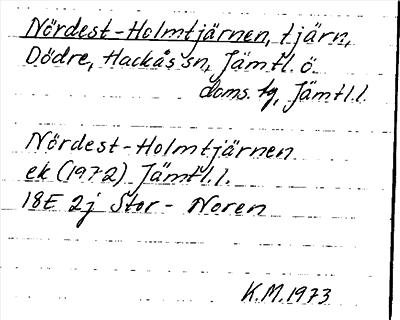 Nördest-Holmtjärnen, tjärn,
Dödre, Hackås sn, Jämtl. ö.
doms. tg, Jämtl.l.
Nördest-Holmtjärnen
ek (1972) Jämtl.l.
18E 2j Stor-Noren
K.M.1973